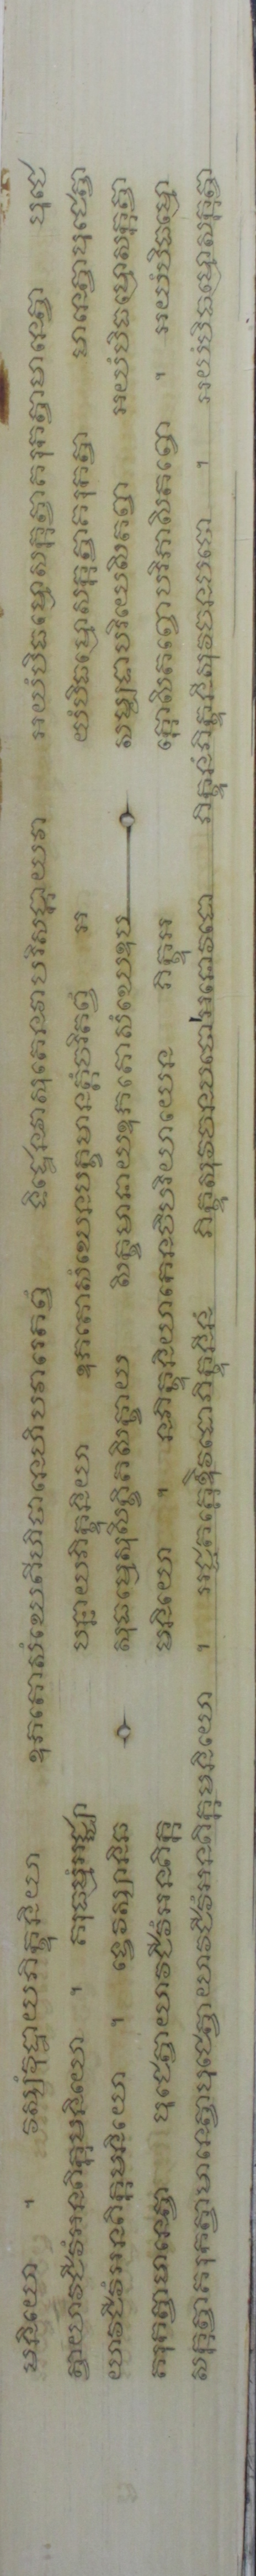 មនិយោ ។ វស្សំវុដ្ឋាយភិក្ខុនិយា ឧភតោសំឃេតីហិឋានេហិបវារេតព្វំ ទិដ្ឋេនវាសុតេនវាបរិសង្កាយវា អយំបិធម្មោសក្កត្វាគរុកត្វាមានេត្វា បុជេ
ត្វាយាវជីវំអនតិក្កមនិយោ ។ គរុធម្មំអជ្ឈា បន្នាយភិក្ខុនិយា ឧភតោសំឃេបក្ខមានត្តំចរិតព្វំ អ យំបិធម្មោសក្កត្វាគរុកត្វា មានេត្វាបុជេត្វា
យាវជីវំអនតិក្កមនិយោ ។ ទ្វេវស្សានិឆ សុធម្មេសុសិក្ខិតសិក្ខាយ សិក្ខមានាយឧភតោសំឃេឧប សម្បទាបរិយេសិតព្វា អយំបិធម្មោសក្កត្វា
គរុកត្វាមានេត្វា បុជេត្វាយាវជីវំអនតិក្ក មនិយោ ។ នភិក្ខុនិយាកេនចិបរិយាយេន ភិក្ខុអ ក្កោសិតព្វោបរិភាសិតព្វោ ។ អយំបិធម្មោ
សក្កត្វាគរុកត្វាមានេត្វាបុជេត្វាយាវជីវំអនតិក្កមនិយោ ។ អជ្ជតគ្គេឱវដោភិក្ខុនីនំ ភិក្ខុសុវចនបថោអនោវដោ ភិក្ខុនំភិក្ខុនីសុវចនបថោ ។ អយំបិធម្មោសក្កត្វា